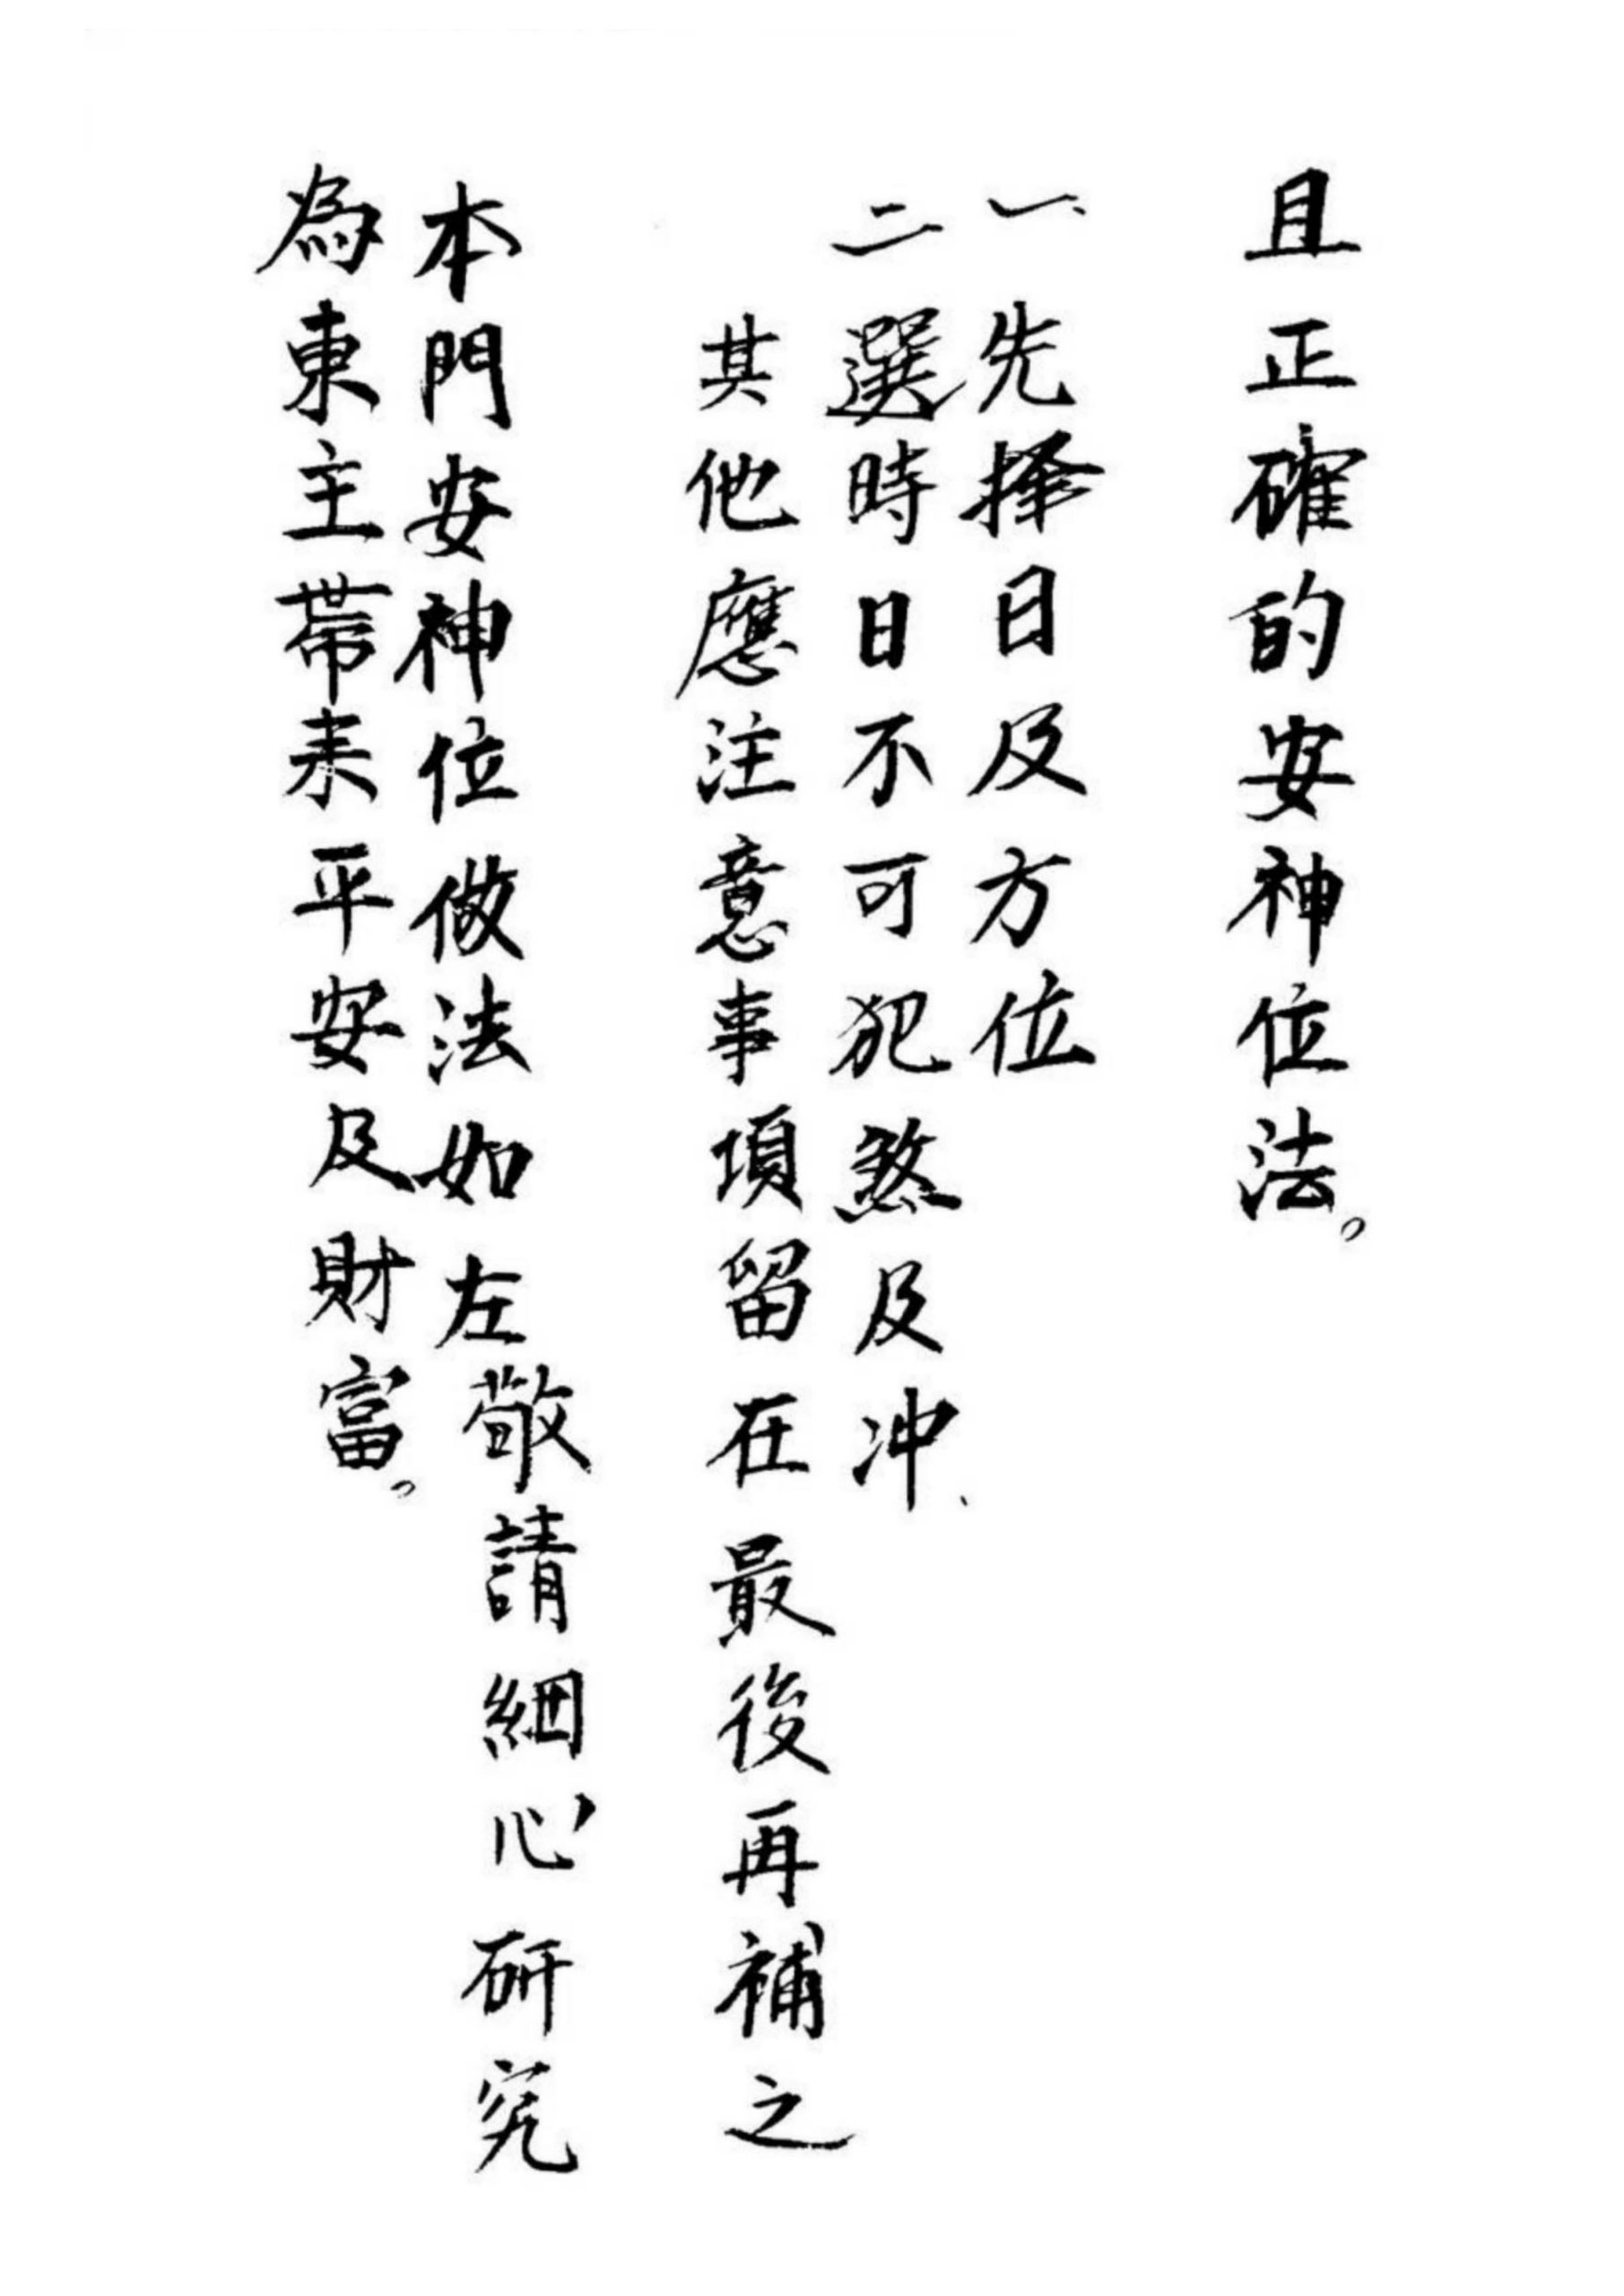 且正確的安神位法。
一、先择日及方位
二選時日不可犯煞及冲、
其他應注意事項留在最後再補之
本門安神位做法如左敬請細心研究
為東主帶来平安及財富。